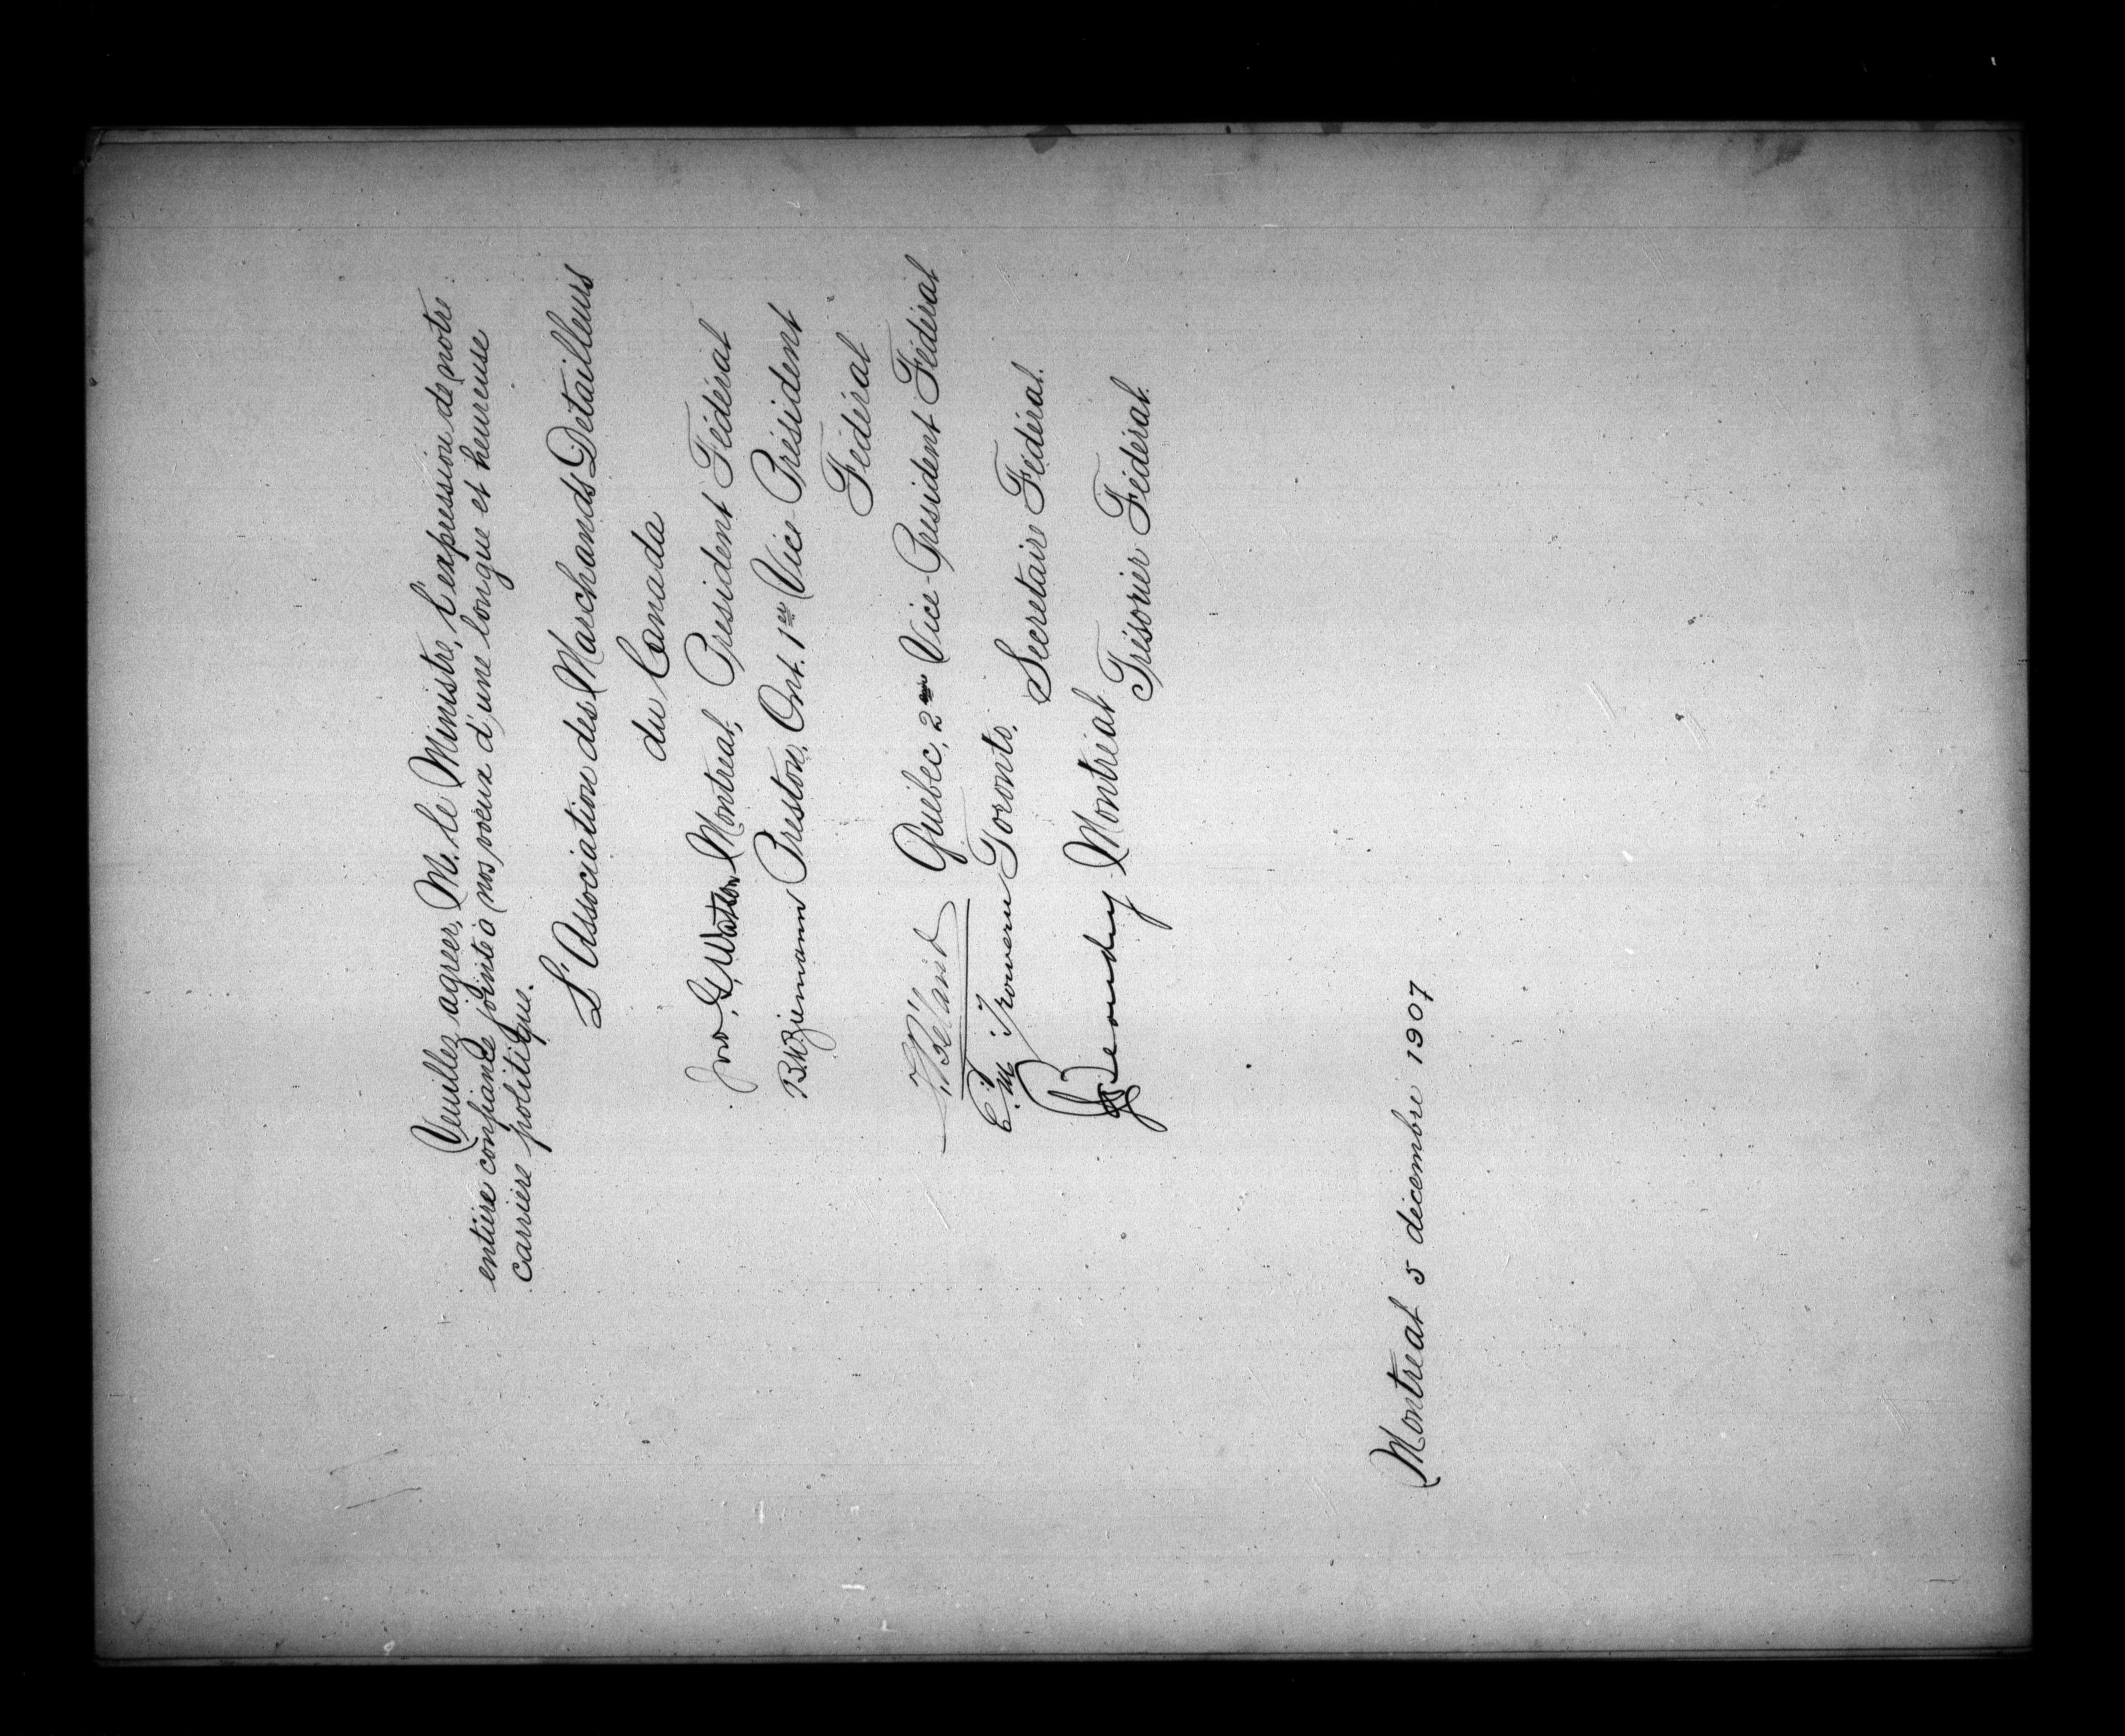 Veuillez agréer, M. le Ministre, l'expression de notre
entière confiance jointe à nos voeux d'une longue et heureuse
carrière politique.
L'Association des Marchands Détailleurs
du Canada
Jno. G. Watson Montréal, Président Fédéral
B.W. Ziemann Preston, Ont. 1er Vice-Président
Fédéral
Béland Québec, 2me Vice-Président Fédéral
E. M. Trowern Toronto.
Secrétaire Fédéral.
Beaudry Montréal
Trésorier Fédéral.
Montréal 5 décembre 1907